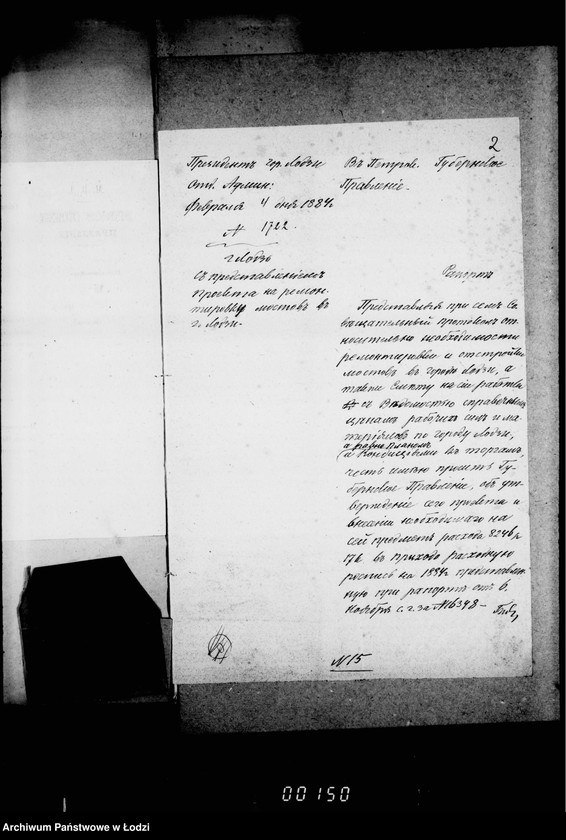 2
Президентъ гор. Лодзи
Отд. Админ:
Февраля 4 дня 1884 г
№ 1722.
г. Лодзь
Съ представленіемъ
проекта на ремон-
тировку мостовъ въ
г. Лодзи.
Въ Петрок. Губернское
Правленіе.
Рапортъ
Представляя при семъ Со-
вѣщательный протоколъ от-
носительно необходимости
ремонтировки и отстройки
мостовъ въ городѣ Лодзи, а
также смѣту на сіи работы
съ Вѣдомостью справочныхъ
цѣнамъ рабочихъ силъ и ма-
теріаловъ по городу Лодзи,
а равно планомъ
и кондиціями къ торгамъ,
честь имѣю просить Гу-
бернское Правленіе, объ ут-
вержденіе сего проекта и
внесеніи необходимаго на
сей предметъ расхода 8246 р
17 к. въ приходо расходную
роспись на 1884 г. представлен-
ную при рапортѣ отъ 6.
Ноября с. г. за № 6348 –
№ 15
00150
Archiwum Państwowe w Łodzi